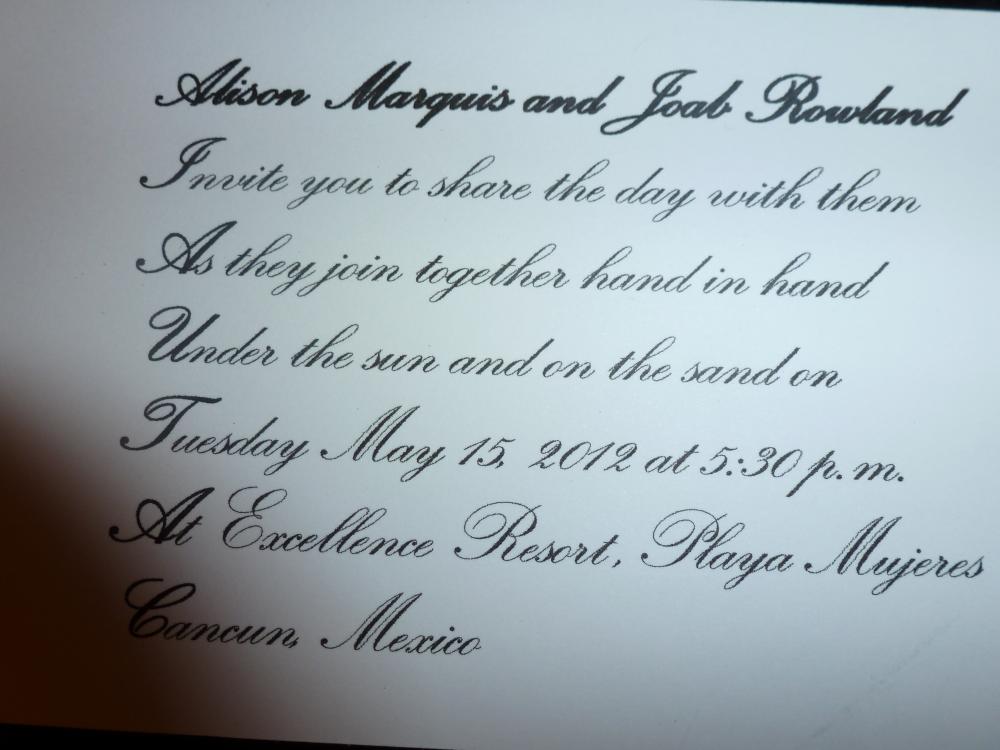 Alison Marquis and Joab Rowland
Invite you to share the day with them
As they join together hand in hand
Under the sun and on the sand on
Tuesday May 15, 2012 at 5:30 p.m.
At Excellence Resort, Playa Mujeres
Cancun, Mexico